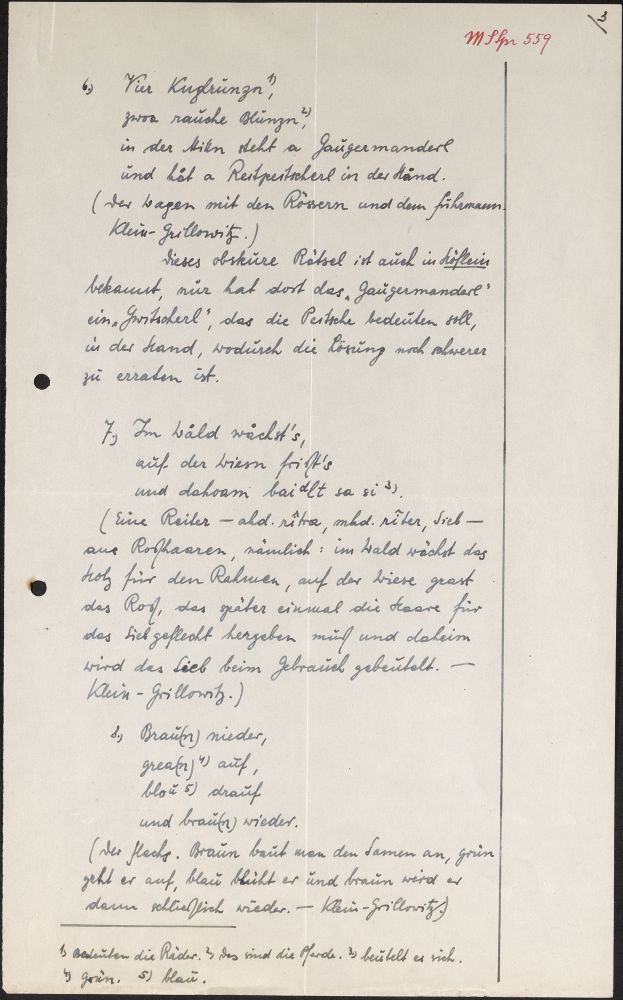 /3
MSGr 559
6.) Vier Kuglrunzn¹⁾,
zwoa rauche Blunzn²⁾,
in der Mittn steht a Gaugermanderl
und hât a Reitpeitscherl in der Hånd.
(Der Wagen mit den Rössern und dem Fuhrmann.
Klein-Grillowitz.)
Dieses obskure Rätsel ist auch in Höflein
bekannt, nur hat dort das „Gaugermanderl"
ein „Gwitscherl", das die Peitsche bedeuten soll,
in der Hand, wodurch die Lösung noch schwerer
zu erraten ist.
7.) Im Wåld wåchst's,
auf der Wiesn frißt's
und dahoam baidlt sa si ³⁾.
(Eine Reiter — ahd. rîtra, mhd. rîter, Sieb —
aus Roßhaaren, nämlich: im Wald wächst das
Holz für den Rahmen, auf der Wiese grast
das Roß, das später einmal die Haare für
das Siebgeflecht hergeben muß und daheim
wird das Sieb beim Gebrauch gebeutelt. —
Klein-Grillowitz.)
8.) Brau(n) nieder,
grea(n)⁴⁾ auf,
blou ⁵⁾ drauf
und brau(n) wieder.
(Der Flachs. Braun baut man den Samen an, grün
geht er auf, blau blüht er und braun wird er
dann schließlich wieder. — Klein-Grillowitz.)
1) Bedeuten die Räder. 2) Das sind die Pferde. 3) beutelt es sich.
4) grün. 5) blau.